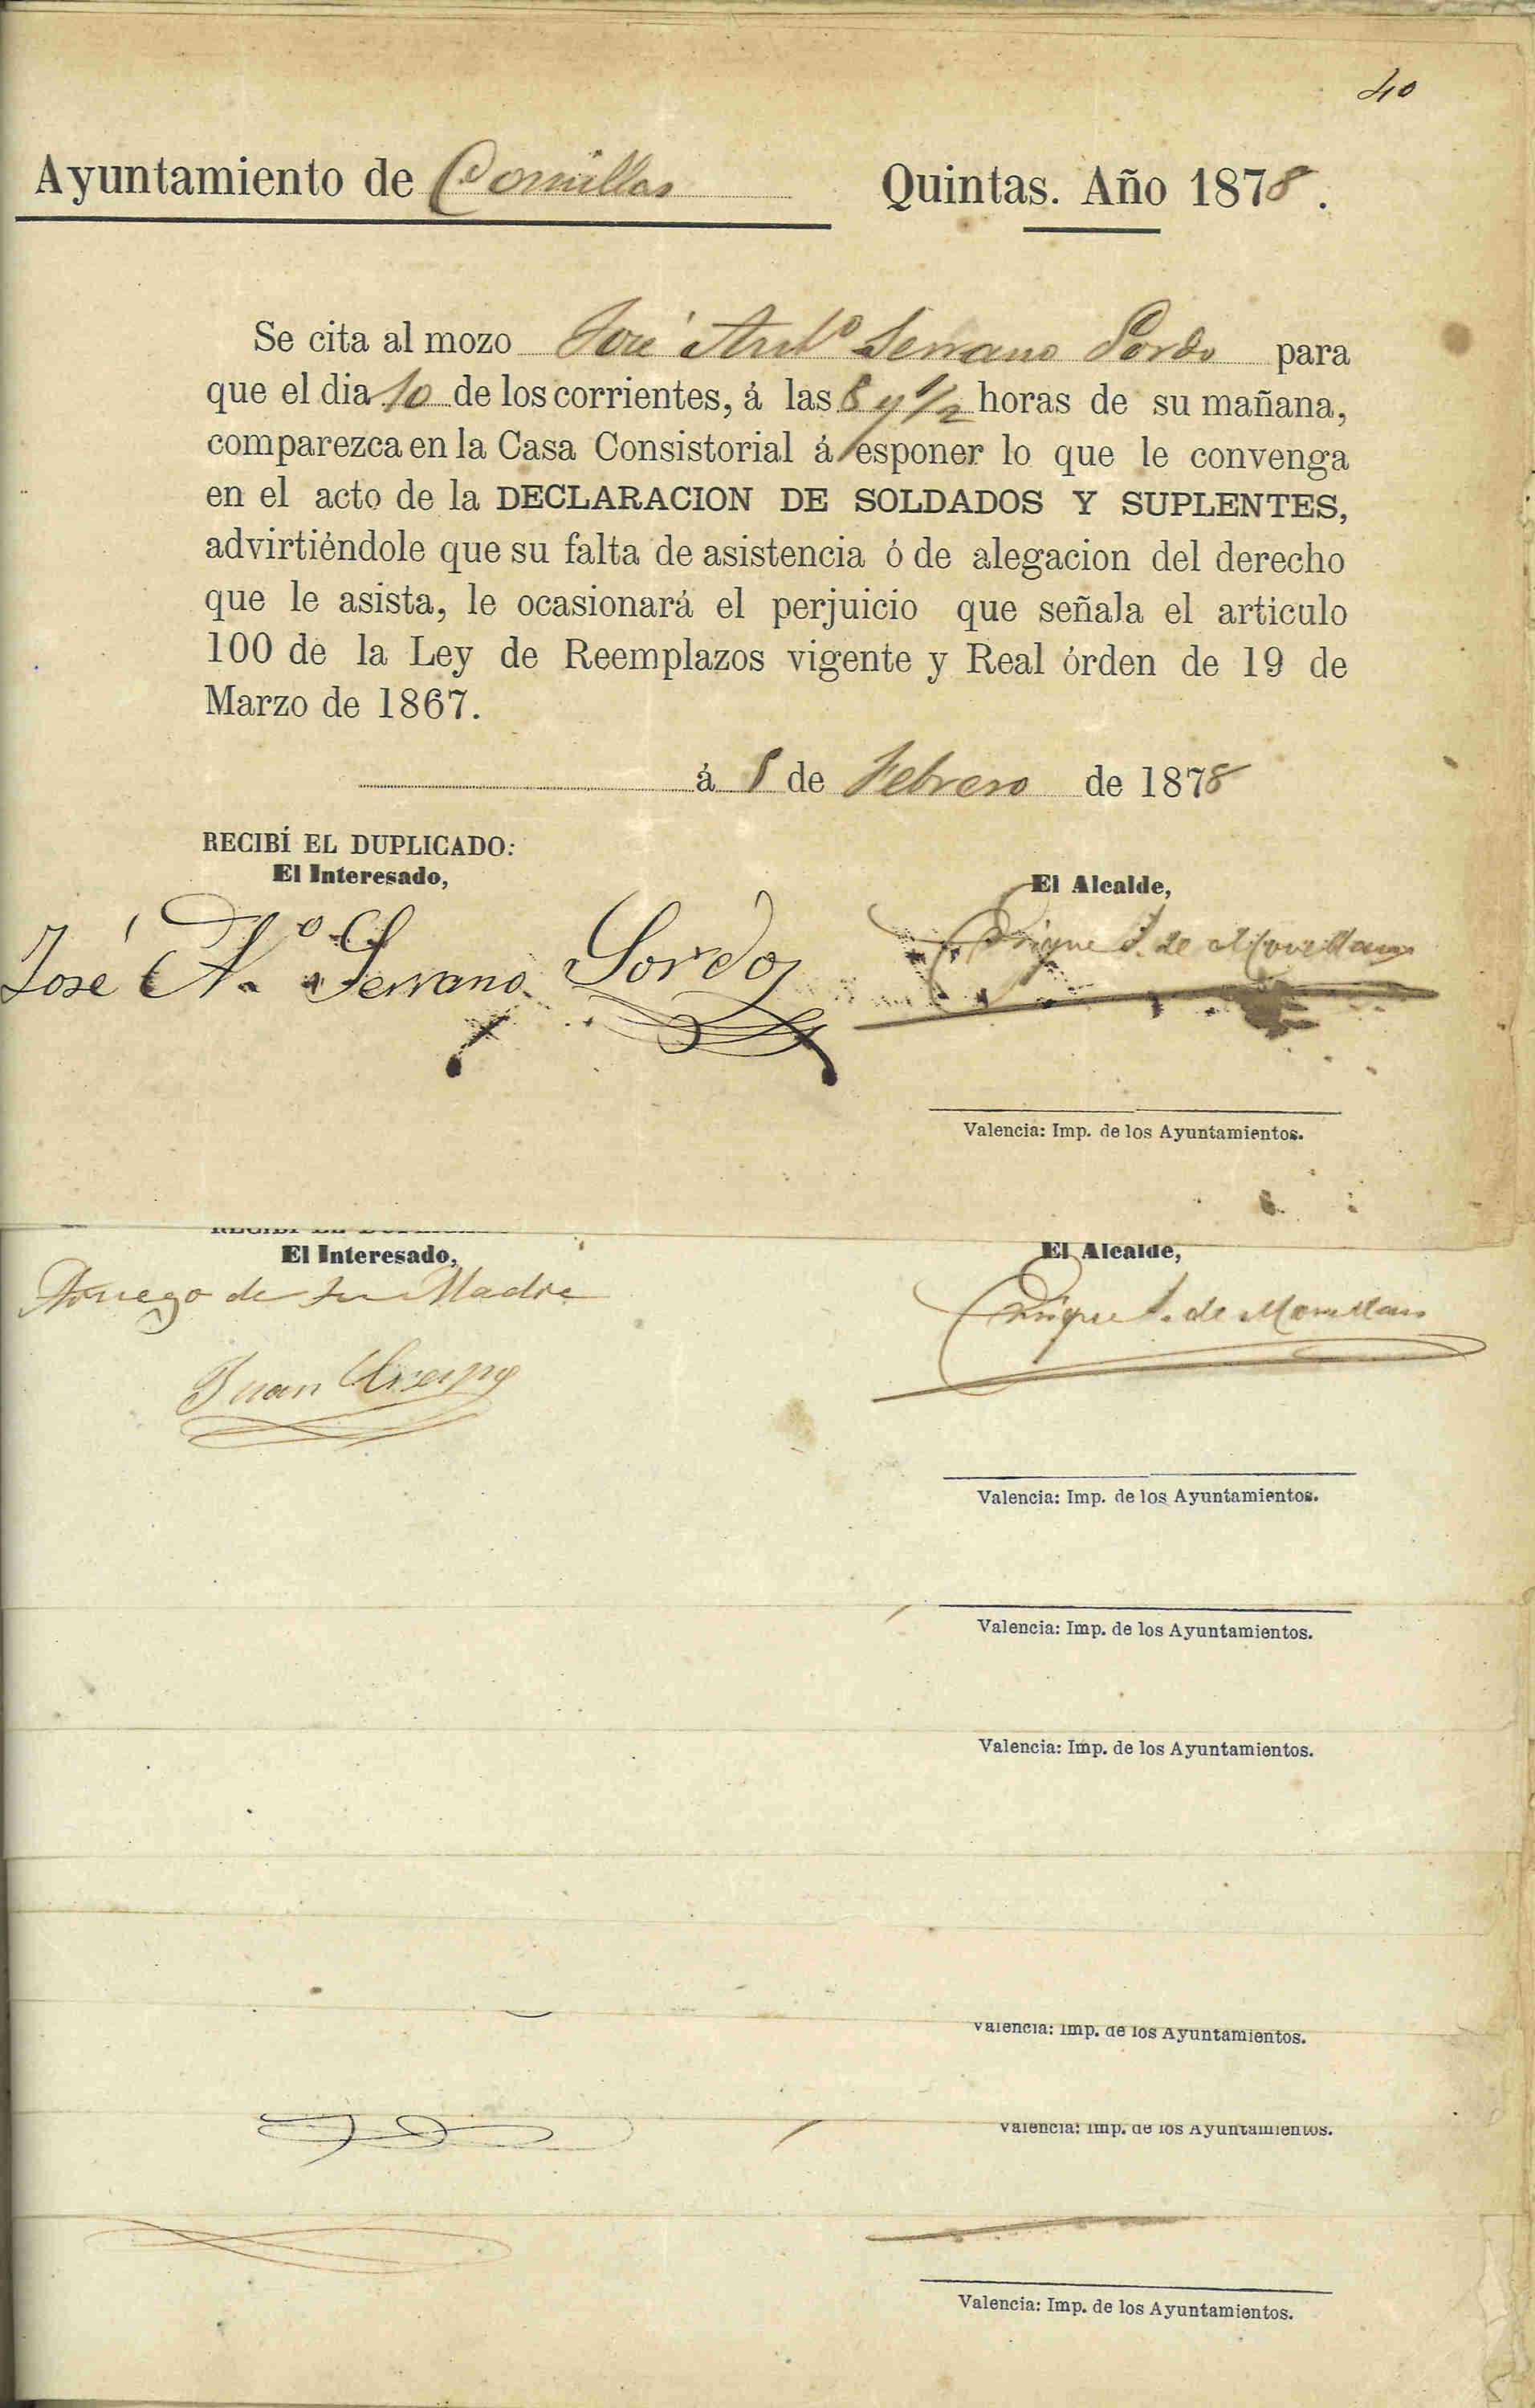 40
Ayuntamiento de Comillas Quintas. Año 1878.
Se cita al mozo José Antº Serrano Sordo para
que el dia 10 de los corrientes, á las 8 y 1/2 horas de su mañana,
comparezca en la Casa Consistorial á esponer lo que le convenga
en el acto de la DECLARACION DE SOLDADOS Y SUPLENTES,
advirtiéndole que su falta de asistencia ó de alegacion del derecho
que le asista, le ocasionará el perjuicio que señala el articulo
100 de la Ley de Reemplazos vigente y Real órden de 19 de
Marzo de 1867.
á 8 de Febrero de 1878
RECIBÍ EL DUPLICADO:
El Interesado,
El Alcalde,
José Aº Serrano Sordo
Enrique S. de Movellan
Valencia: Imp. de los Ayuntamientos.
El Interesado,
El Alcalde,
Aruego de su Madre
Enrique S. de Movellan
Juan Crespo
Valencia: Imp. de los Ayuntamientos.
Valencia: Imp. de los Ayuntamientos.
Valencia: Imp. de los Ayuntamientos.
Valencia: Imp. de los Ayuntamientos.
Valencia: Imp. de los Ayuntamientos.
Valencia: Imp. de los Ayuntamientos.